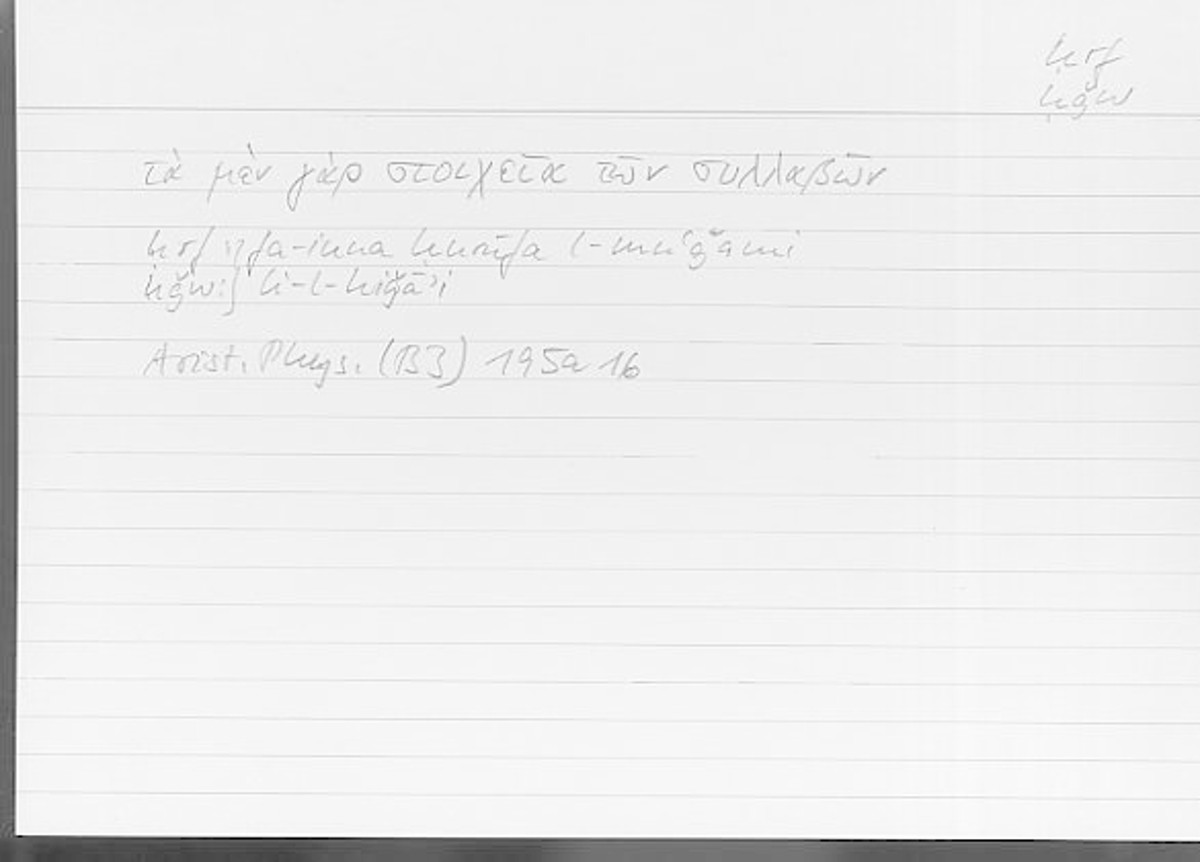 ḥrf
ḥǧw
τὰ μὲν γὰρ στοιχεῖα τῶν συλλαβῶν
ḥrf :] fa-inna ḥurūfa l-muʿǧami
ḥǧw:] li-l-hiǧāʾi
Arist. Phys. (B3) 195a 16